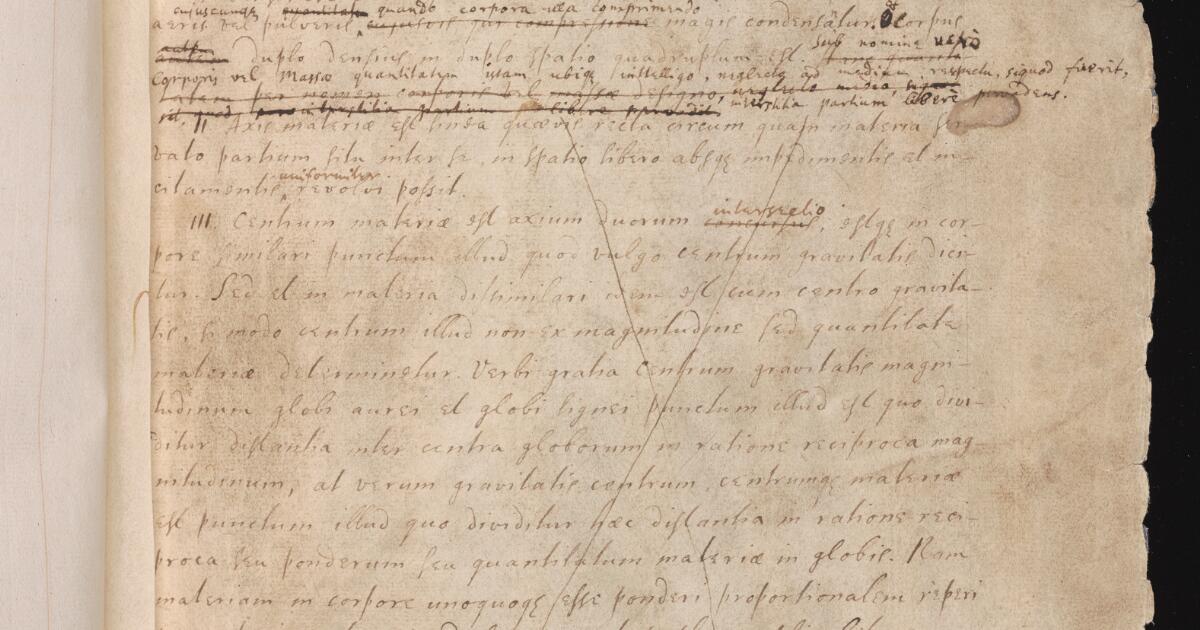 cujuscunqꝫ quantitate quando corpora illa comprimendo
aeris vel pulveris, magis condensatur. Et corpus
duplo densius in duplo spatio quadruplum est. Sub nomine vero
Corporis vel Massæ quantitatem istam ubiqꝫ intelligo, neglecto ad medium respectu, siquod fuerit,
latam per nomen corporis vel massæ designo, neglecto medio,
interstitia partium libere pervadens.
II Axis materiæ est linea quævis recta circum quam materia ser-
vato partium situ inter se, in spatio libero absqꝫ impedimentis et in-
citamentis uniformiter revolvi possit.
III. Centrum materiæ est axium duorum concursus intersectio, estqꝫ in cor-
pore similari punctum illud quod vulgo centrum gravitatis dici-
tur. Sed et in materia dissimilari idem est cum centro gravita-
tis, si modo centrum illud non ex magnitudine sed quantitate
materiæ determinetur. Verbi gratia Centrum gravitatis magni-
tudinum globi aurei et globi lignei punctum illud est quo divi-
ditur distantia inter centra globorum in ratione reciproca mag-
nitudinum, at verum gravitatis centrum, centrumqꝫ materiæ
est punctum illud quo dividitur hæc distantia in ratione reci-
proca seu ponderum seu quantitatum materiæ in globis. Nam
materiam in corpore unoquoqꝫ esse ponderi proportionalem reperi